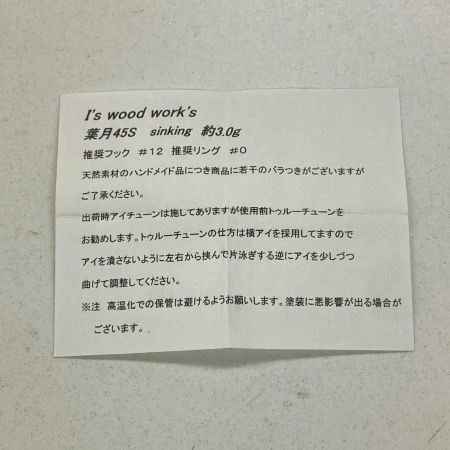 I's wood work's
葉月45S sinking 約3.0g
推奨フック #12 推奨リング #0
天然素材のハンドメイド品につき商品に若干のバラつきがございますが
ご了承ください。
出荷時アイチューンは施してありますが使用前トゥルーチューンを
お勧めします。トゥルーチューンの仕方は横アイを採用してますので
アイを潰さないように左右から挟んで片泳ぎする逆にアイを少しづつ
曲げて調整してください。
※注 高温化での保管は避けるようお願いします。塗装に悪影響が出る場合が
ございます。